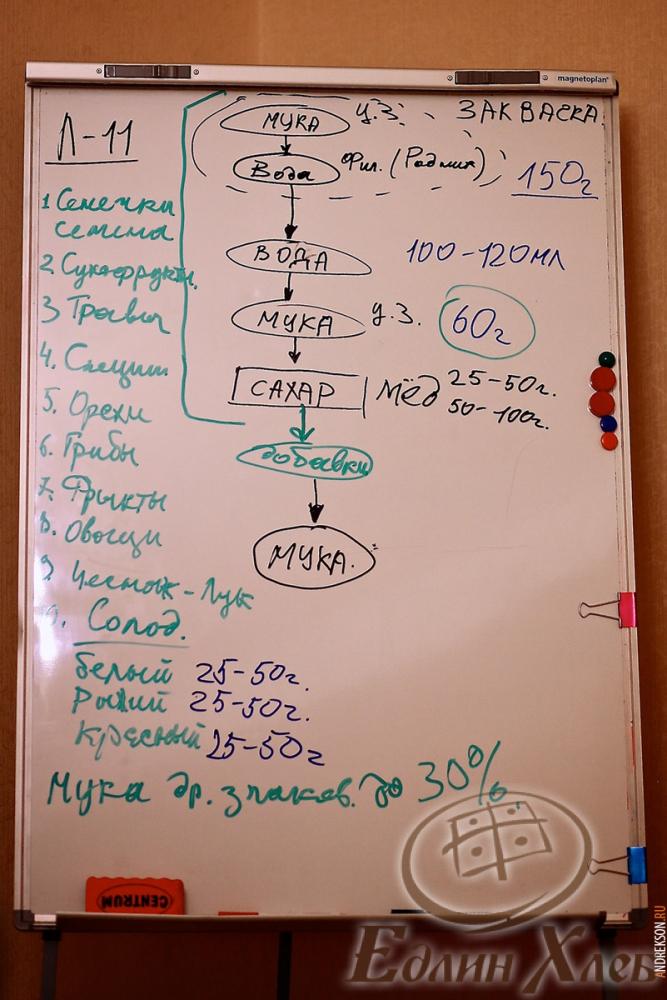 magnetoplan
Л-11
МУКА ц.з. ЗАКВАСКА
Вода Фил. (Родник) 150г
ВОДА 100-120мл
МУКА ц.з. 60г
САХАР Мёд 25-50г.
50-100г.
добавки
МУКА.
1 Семечки
семена
2. Сухофрукты.
3 Травы
4. Специи
5. Орехи
6. Грибы
7. Фрукты
8. Овощи
9. Чеснок-Лук
Солод.
белый 25-50г.
Рыжий 25-50г.
красный 25-50г
Мука др. злаков. до 30%.
CENTRUM
Едлин Хлеб
ANDREKSON.RU